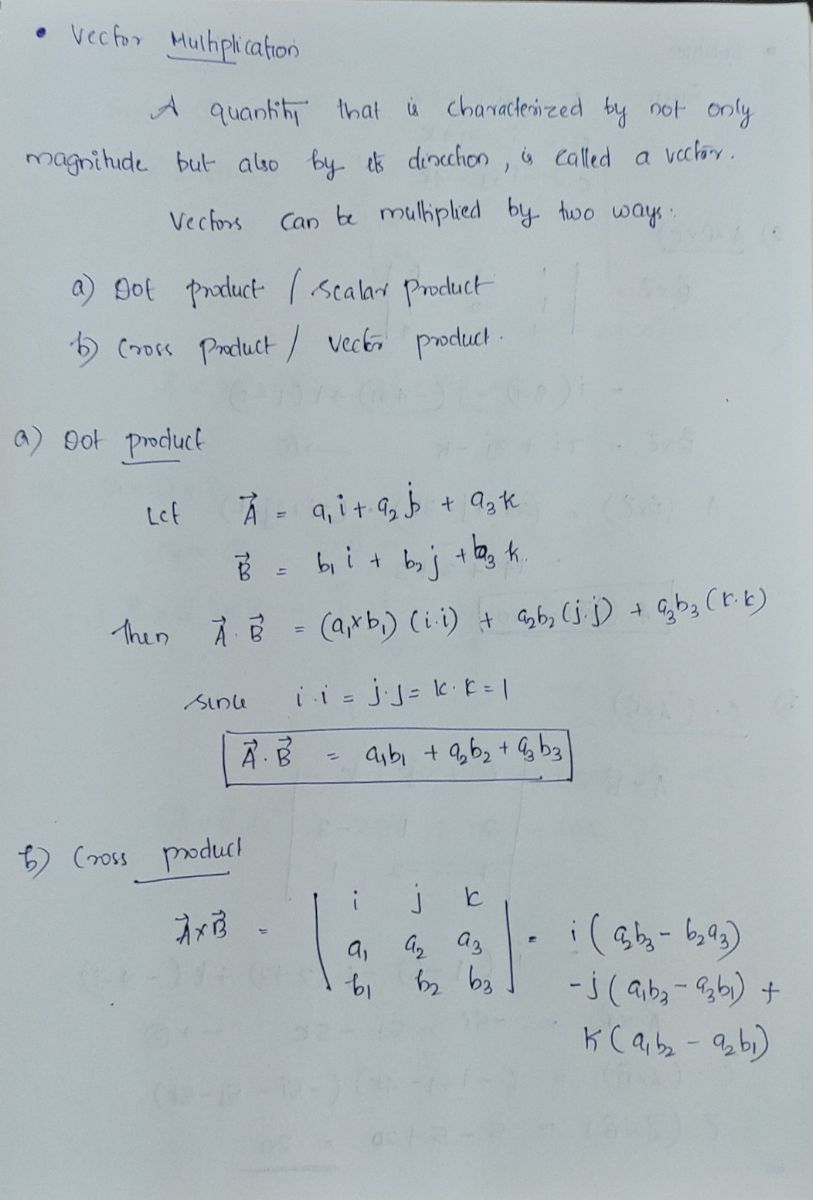 • Vector Multiplication
A quantity that is characterized by not only
magnitude but also by its direction, is called a vector.
Vectors can be multiplied by two ways.
a) Dot product / scalar product
b) Cross product / vector product.
a) Dot product
Let A⃗ = a₁i + a₂j + a₃k
B⃗ = b₁i + b₂j + b₃k.
Then A⃗ . B⃗ = (a₁×b₁) (i.i) + a₂b₂ (j.j) + a₃b₃ (k.k)
since i.i = j.j = k.k = 1
A⃗ . B⃗ = a₁b₁ + a₂b₂ + a₃b₃
b) Cross product
A⃗×B⃗ = | i j k | = i(a₂b₃ - b₂a₃)
| a₁ a₂ a₃ | -j(a₁b₃ - a₃b₁) +
| b₁ b₂ b₃ | k(a₁b₂ - a₂b₁)